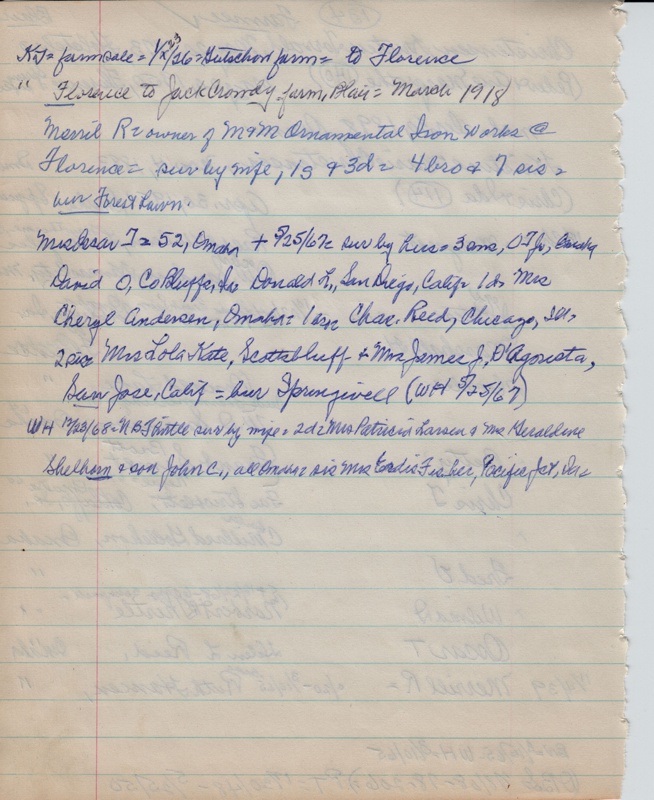 KJ = farm sale = 1/2/26 = Gutschow farm = to Florence
" Florence to Jack Crowdy farm, Blair = March 1918
Merril R = owner of M & M Ornamental Iron Works @
Florence = sur by wife, 1s & 3d = 4 bro & 7 sis =
bur Forest Lawn.
Mrs Oscar T = 52, Omaha + 5/25/67 = sur by hus = 3 sons, O T Jr,
David O, Co Bluffs, Ia Donald L., San Diego, Calif = 1d = Mrs
Cheryl Andersen, Omaha = 1 Chas. Reed, Chicago, Ill,
2 sis = Mrs Lola Kate, Scottsbluff & Mrs James J, D'Agosta,
San Jose, Calif = bur Springwell (WH 5/25/67)
WH 12/23/68 = N B Thirtle sur by wife = 2d = Mrs Patricia Larsen & Mrs Geraldine
Shelhorn & son John C., all Omaha = sis Mrs Fisher, Pacific Jct, Ia =